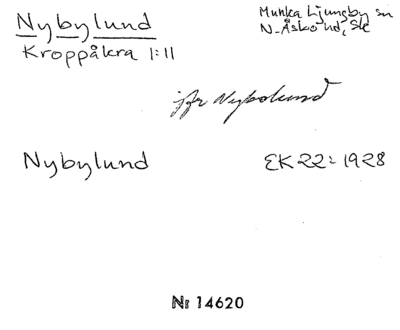 Nybylund
Munka Ljungby sn
N. Åsbo hd, Sk
Kroppåkra 1:11
jfr Nybolund
Nybylund
EK 22: 1928
Nr 14620